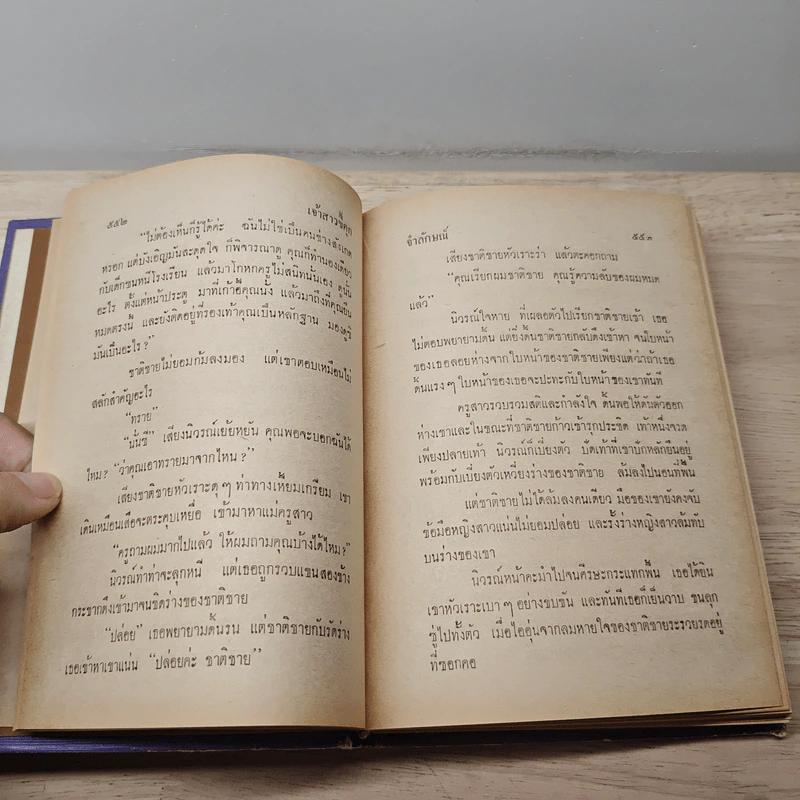 ๕๕๒
เจ้าสาวขี้คุก
“ไม่ต้องเห็นก็รู้ได้ค่ะ ฉันไม่ใช่เป็นคนช่างสังเกต
หรอก แต่บังเอิญมันสะดุดใจ ก็พิจารณาดู คุณก็ทำนองเดียว
กับเด็กขนหนีโรงเรียน แล้วมาโกหกครูไม่สนิทนั่นเอง ดูนั่น
อะไร ตั้งแต่หน้าประตู มาที่เก้าอี้คุณนั่ง แล้วมาถึงที่คุณยืน
หมดตรงนั้น และยังติดอยู่ที่รองเท้าคุณเป็นหลักฐาน มองดูซิ
มันเป็นอะไร ?”
ชาติชายไม่ยอมก้มลงมอง แต่เขาตอบเหมือนไม่
สลักสำคัญอะไร
“ทราย”
“นั่นซี” เสียงนิวรณ์เย้ยหยัน คุณพอจะบอกฉันได้
ไหม ? “ว่าคุณเอาทรายมาจากไหน ?”
เสียงชาติชายหัวเราะดุ ๆ ท่าทางเหี้ยมเกรียม เขา
เดินเหมือนเสือจะตระคุบเหยื่อ เข้ามาหาแม่ครูสาว
“ครูถามผมมากไปแล้ว ให้ผมถามคุณบ้างได้ไหม?”
นิวรณ์ทำท่าจะลุกหนี แต่เธอถูกรวบแขนสองข้าง
กระชากดึงเข้ามาจนชิดร่างของชาติชาย
“ปล่อย” เธอพยายามดิ้นรน แต่ชาติชายกับรัดร่าง
เธอเข้าหาเขาแน่น “ปล่อยค่ะ ชาติชาย”
จำลักษณ์
๕๕๓
เสียงชาติชายหัวเราะร่า แล้วตะคอกถาม
“คุณเรียกผมชาติชาย คุณรู้ความลับของผมหมด
แล้ว”
นิวรณ์ใจหาย ที่เผลอตัวไปเรียกชาติชายเข้า เธอ
ไม่ตอบพยายามดิ้น แต่ยิ่งดิ้นชาติชายกลับดึงเข้าหา จนใบหน้า
ของเธอลอยห่างจากใบหน้าของชาติชายเพียงแต่ว่าถ้าเธอ
ดิ้นแรง ๆ ใบหน้าของเธอจะปะทะกับใบหน้าของเขาทันที
ครูสาวรวบรวมสติและกำลังใจ ดิ้นพอให้ดันตัวออก
ห่างเขาและในขณะที่ชาติชายก้าวเข้ารุกประชิด เท้าหนึ่งจรด
เพียงปลายเท้า นิวรณ์ก็เบี่ยงตัว ปัดเท้าที่เขาปักหลักยืนอยู่
พร้อมกับเบี่ยงตัวเหวี่ยงร่างของชาติชาย ล้มลงไปนอนที่พื้น
แต่ชาติชายไม่ได้ล้มลงคนเดียว มือของเขายังคงจับ
ข้อมือหญิงสาวแน่นไม่ยอมปล่อย และรั้งร่างหญิงสาวล้มทับ
บนร่างของเขา
นิวรณ์หน้าคะมำไปจนศีรษะกระแทกพื้น เธอได้ยิน
เขาหัวเราะเบา ๆ อย่างขบขัน และทันทีเธอก็เย็นวาบ ขนลุก
ซู่ไปทั้งตัว เมื่อไออุ่นจากลมหายใจของชาติชายระรวยรดอยู่
ที่ซอกคอ